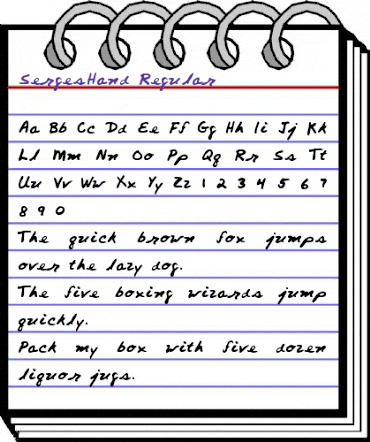 SergesHand Regular
Aa Bb Cc Dd Ee Ff Gg Hh Ii Jj Kk
Ll Mm Nn Oo Pp Qq Rr Ss Tt
Uu Vv Ww Xx Yy Zz 1 2 3 4 5 6 7
8 9 0
The quick brown fox jumps
over the lazy dog.
The five boxing wizards jump
quickly.
Pack my box with five dozen
liquor jugs.